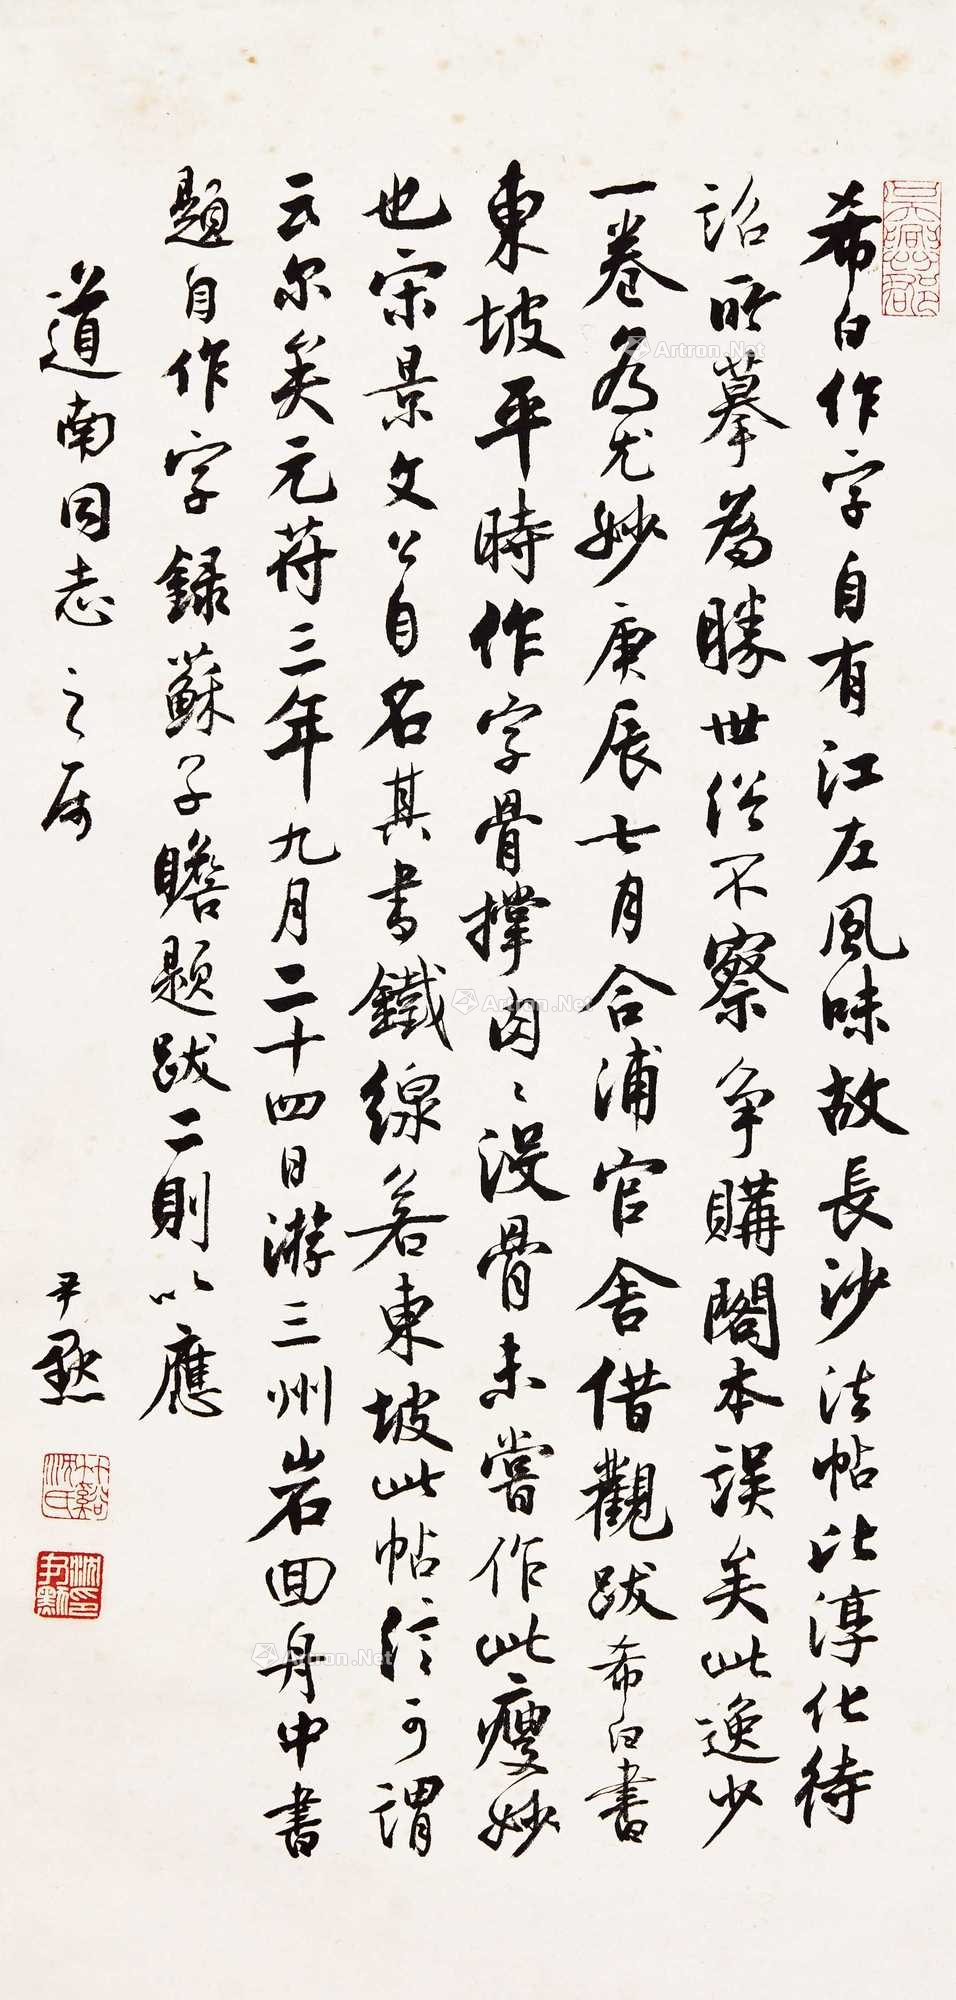 希白作字自有江左風味故長沙法帖比淳化待
詔所摹為勝世俗不察爭購閣本誤矣此逸少
一卷為尤妙庚辰七月合浦官舍借觀跋希白書
東坡平時作字骨撑肉〻没骨未嘗作此瘦妙
也宋景文公自名其書鐵線若東坡此帖信可謂
云尔矣元苻三年九月二十四日游三州岩回舟中書
題自作字錄蘇子瞻題跋二則以應
道南同志之属
尹默
竹谿沈氏
沈尹默印
Artron.Net
Artron.Net
Artron.Net